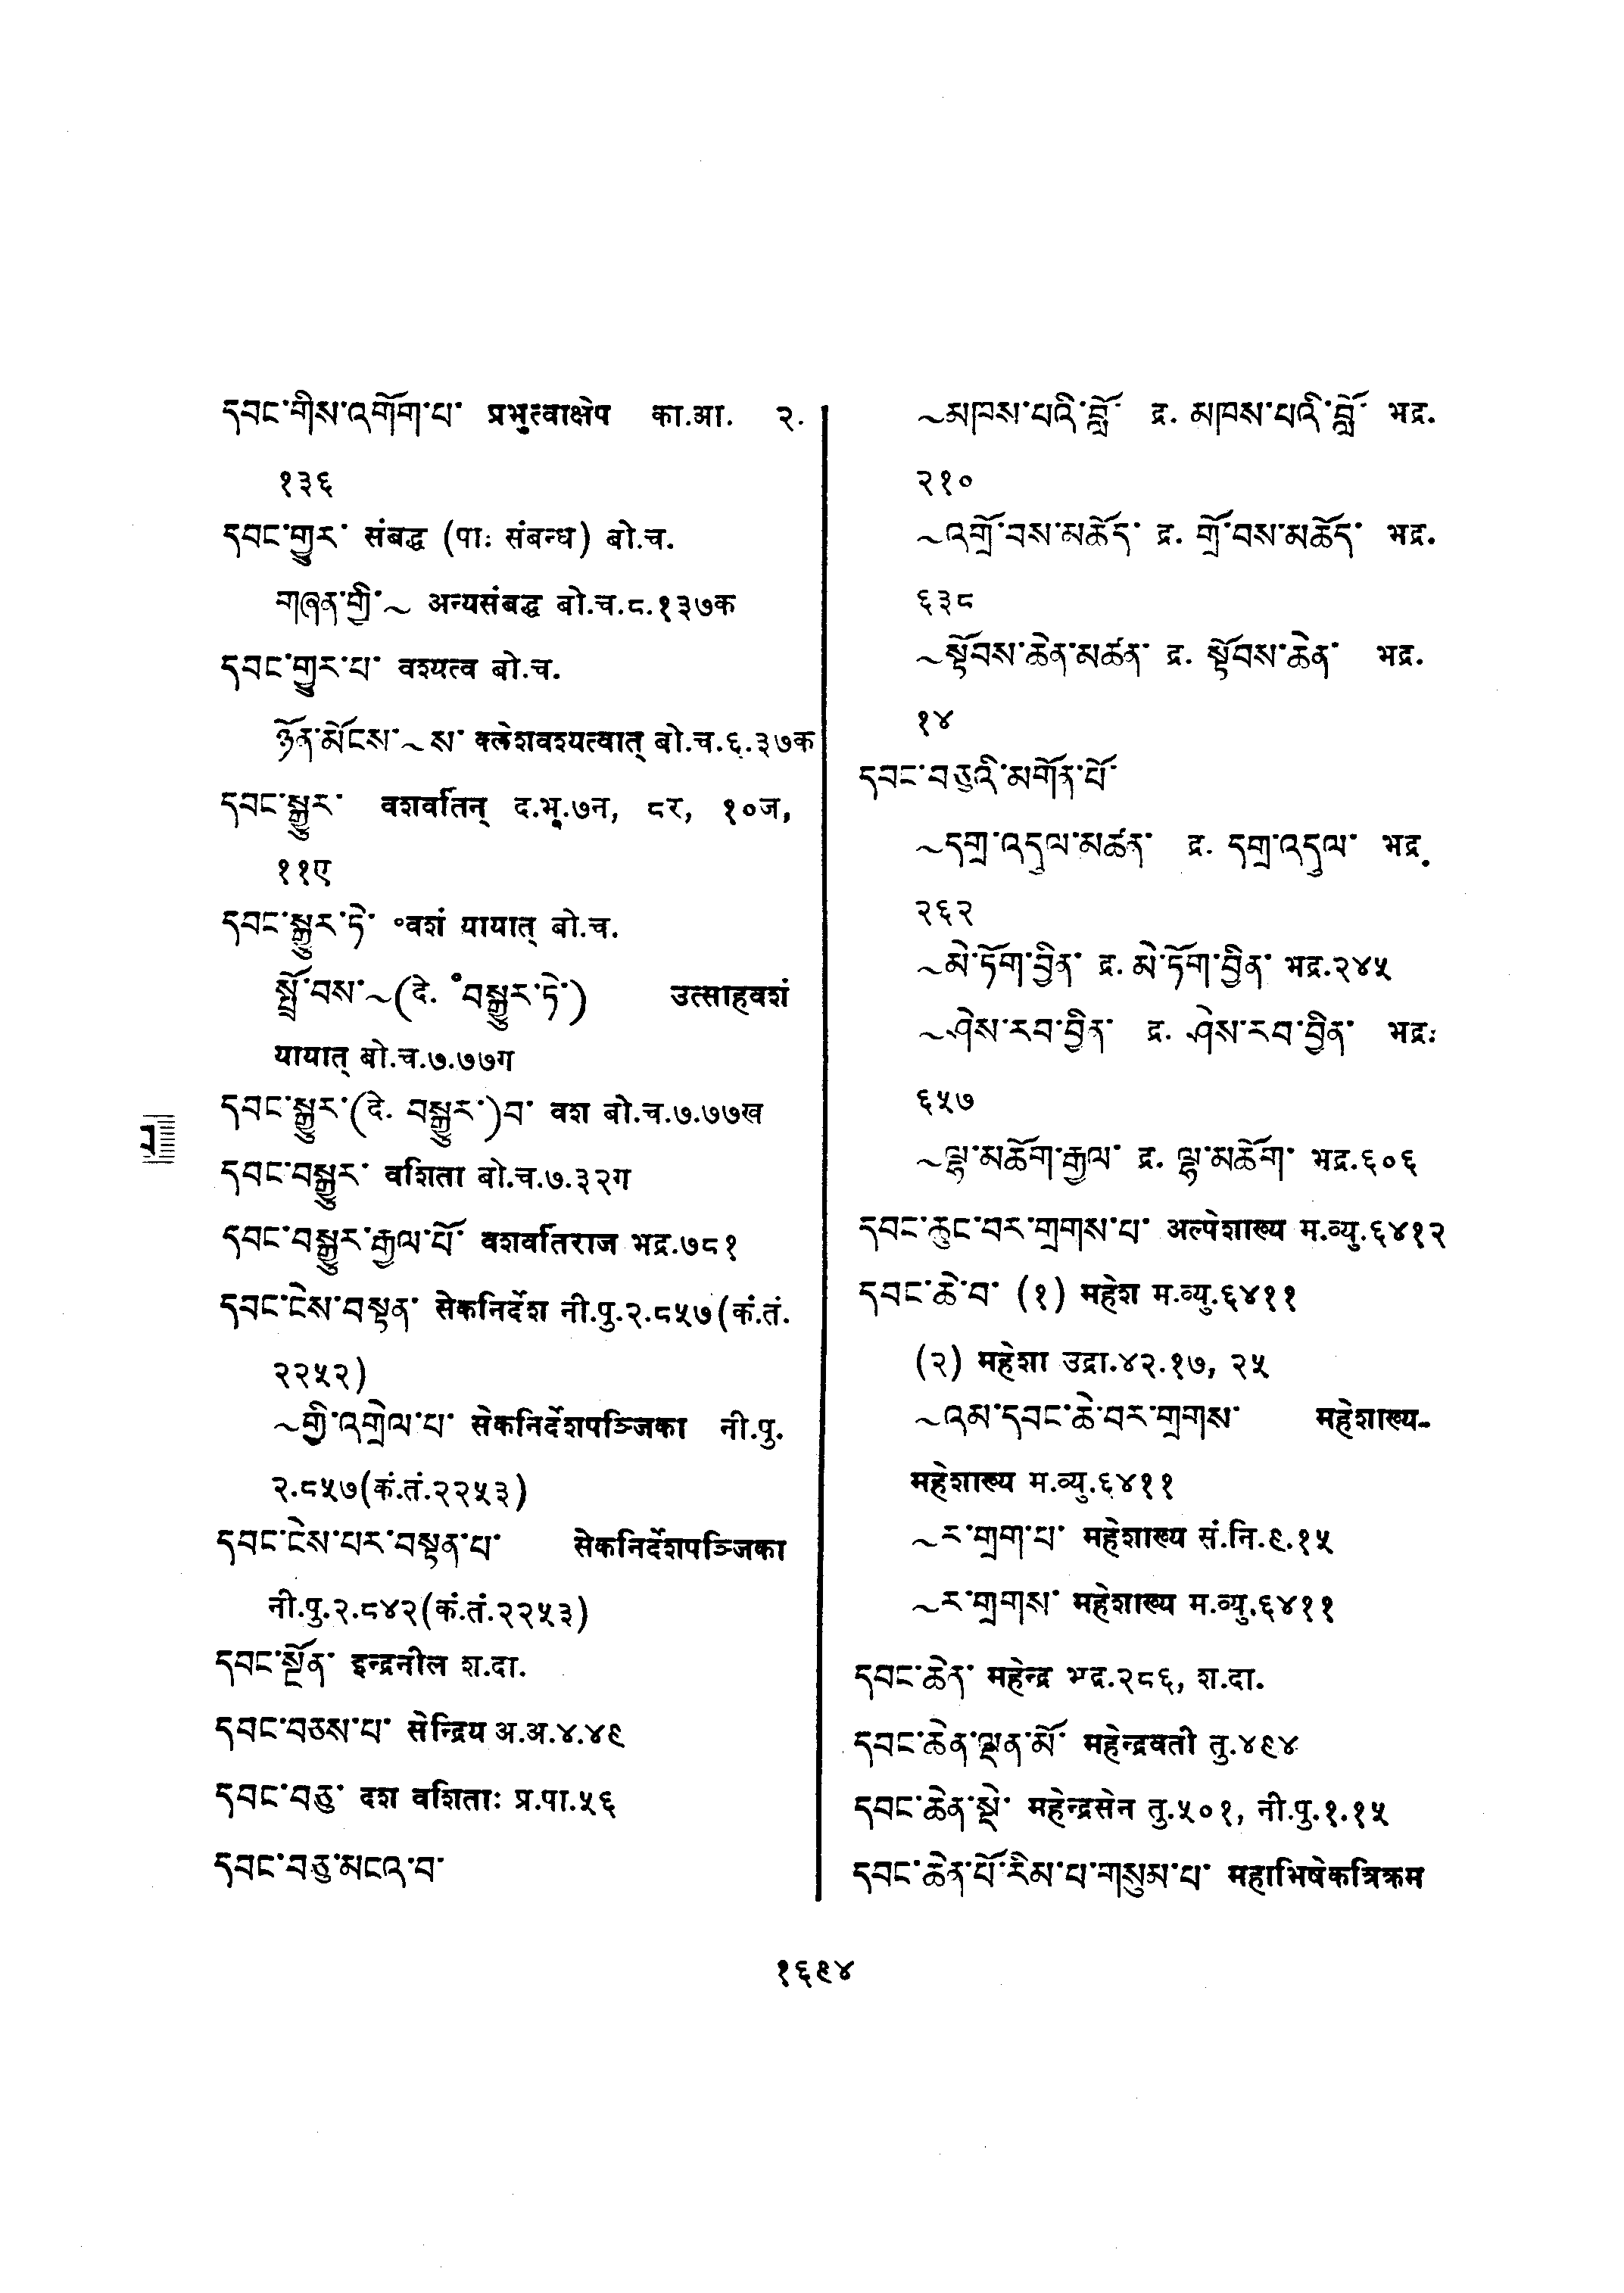 དབང་གིས་འགོག་པ་ प्रभुत्वाक्षेप का.आ. २.
१३६
དབང་གྱུར་ संबद्ध (पाः संबन्ध) बो.च.
གཞན་གྱི་~ अन्यसंबद्ध बो.च.८.१३७क
དབང་གྱུར་པ་ वश्यत्व बो.च.
ཉོན་མོངས་~ས་ क्लेशवश्यत्वात् बो.च.६.३७क
དབང་སྒྱུར་ वशवर्तिन् द.भू.७न, ८र, १०ज,
११ए
དབང་སྒྱུར་ཏེ་ °वशं यायात् बो.च.
སྤྲོ་བས་~(दे. °བསྒྱུར་ཏེ་) उत्साहवशं
यायात् बो.च.७.७७ग
དབང་སྒྱུར་(दे. བསྒྱུར་)བ་ वश बो.च.७.७७ख
དབང་བསྒྱུར་ वशिता बो.च.७.३२ग
དབང་བསྒྱུར་རྒྱལ་པོ་ वशवर्तिराज भद्र.७८१
དབང་ངེས་བསྟན་ सेकनिर्देश नी.पु.२.८५७(कं.तं.
२२५२)
~གྱི་འགྲེལ་པ་ सेकनिर्देशपञ्जिका नी.पु.
२.८५७(कं.तं.२२५३)
དབང་ངེས་པར་བསྟན་པ་ सेकनिर्देशपञ्जिका
नी.पु.२.८४२(कं.तं.२२५३)
དབང་སྔོན་ इन्द्रनील श.दा.
དབང་བཅས་པ་ सेन्द्रिय अ.अ.४.४९
དབང་བཅུ་ दश वशिताः प्र.पा.५६
དབང་བཅུ་མངའ་བ་
~མཁས་པའི་བློ་ द्र. མཁས་པའི་བློ་ भद्र.
२१०
~འགྲོ་བས་མཆོད་ द्र. གྲོ་བས་མཆོད་ भद्र.
६३८
~སྟོབས་ཆེན་མཚན་ द्र. སྟོབས་ཆེན་ भद्र.
१४
དབང་བཅུའི་མགོན་པོ་
~དགྲ་འདུལ་མཚན་ द्र. དགྲ་འདུལ་ भद्र.
२६२
~མེ་ཏོག་བྱིན་ द्र. མེ་ཏོག་བྱིན་ भद्र.२४५
~ཤེས་རབ་བྱིན་ द्र. ཤེས་རབ་བྱིན་ भद्रः
६५७
~ལྷ་མཆོག་རྒྱལ་ द्र. ལྷ་མཆོག་ भद्र.६०६
དབང་ཆུང་བར་གྲགས་པ་ अल्पेशाख्य म.व्यु.६४१२
དབང་ཆེ་བ་ (१) महेश म.व्यु.६४११
(२) महेशा उद्रा.४२.१७, २५
~འམ་དབང་ཆེ་བར་གྲགས་ महेशाख्य-
महेशाख्य म.व्यु.६४११
~ར་གྲག་པ་ महेशाख्य सं.नि.९.१५
~ར་གྲགས་ महेशाख्य म.व्यु.६४११
དབང་ཆེན་ महेन्द्र भद्र.२८६, श.दा.
དབང་ཆེན་ལྡན་མོ་ महेन्द्रवती तु.४९४
དབང་ཆེན་སྡེ་ महेन्द्रसेन तु.५०१, नी.पु.१.१५
དབང་ཆེན་པོ་རིམ་པ་གསུམ་པ་ महाभिषेकत्रिक्रम
१६९४